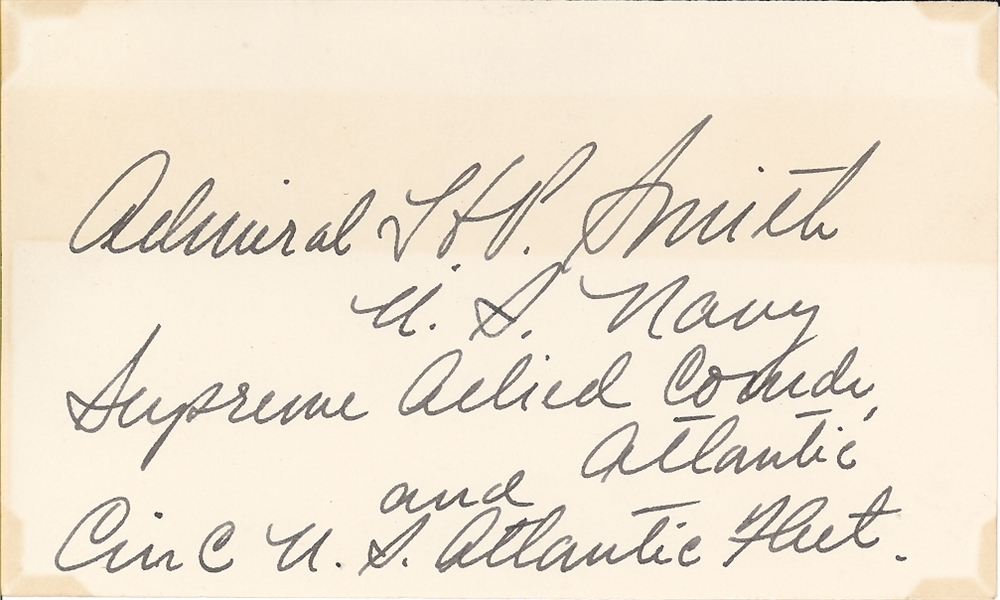 Admiral H.P. Smith
U. S. Navy
Supreme Allied Comdr,
Atlantic
and
CinC U. S. Atlantic Fleet.